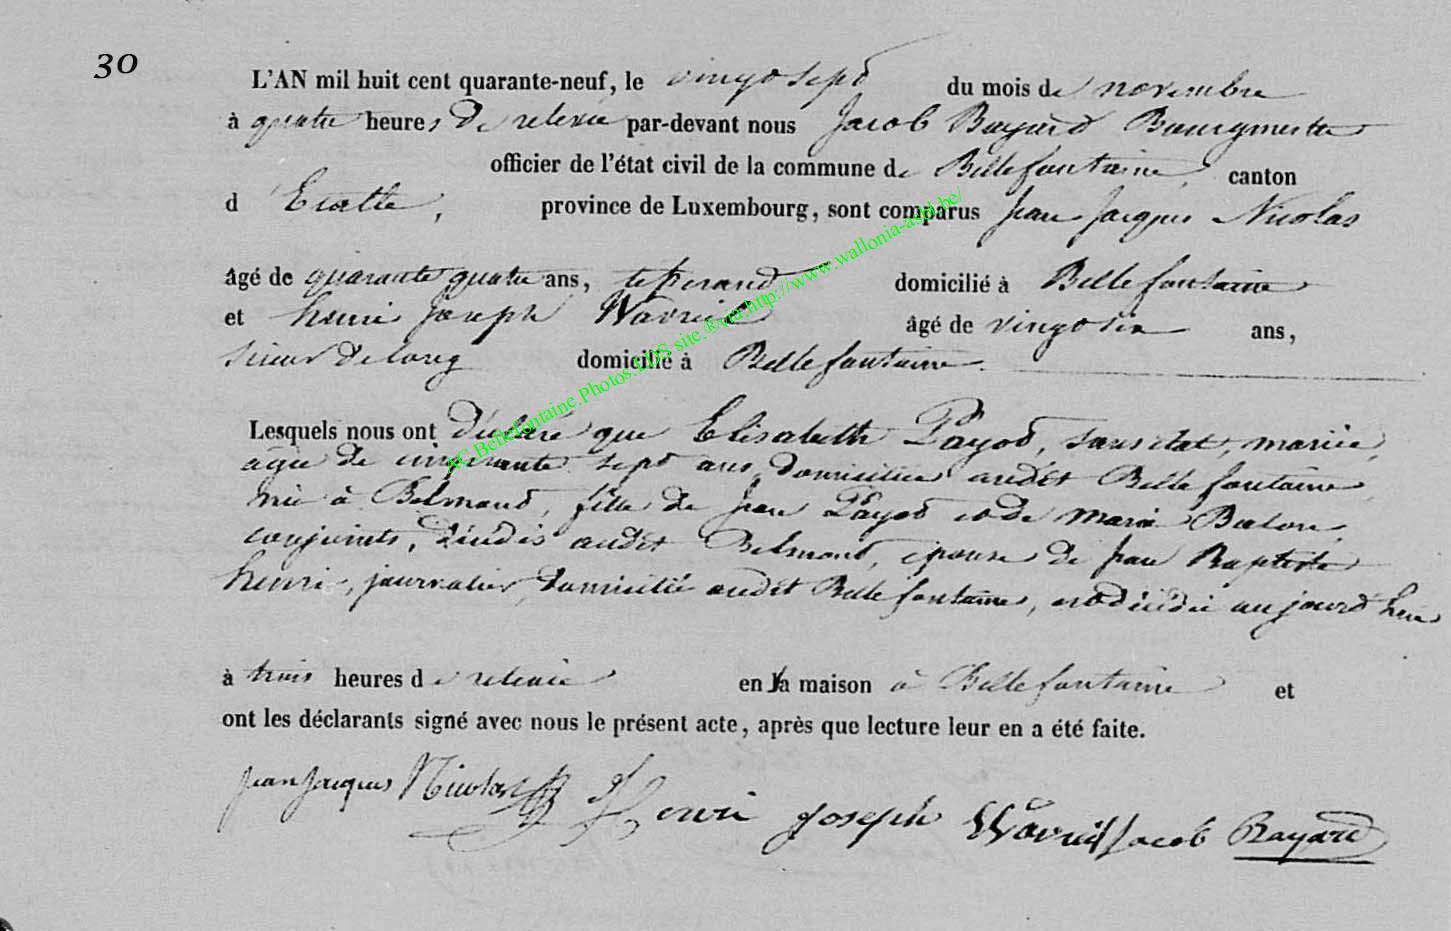 30
L'AN mil huit cent quarante-neuf, le vingt sept du mois de novembre
à quatre heures de relevée par-devant nous Jacob Bayard Bourgmestre
officier de l'état civil de la commune de Bellefontaine, canton
d'Etalle, province de Luxembourg, sont comparus Jean Jacques Nicolas
âgé de quarante quatre ans, tisserand domicilié à Bellefontaine
et henri Joseph Wavreil âgé de vingt six ans,
scieur de long domicilié à Bellefontaine.
Lesquels nous ont déclaré que Elisabeth Payot, sans état, mariée,
agée de cinquante sept ans, domiciliée audit Bellefontaine
née à Belmont, fille de Jean Payot et de marie
conjoints, décédés audit Belmont, épouse de Jean Baptiste
henri, journalier, domicilié audit Bellefontaine, est décédée aujourd'hui
à trois heures de relevée en sa maison à Bellefontaine et
ont les déclarants signé avec nous le présent acte, après que lecture leur en a été faite.
Jean Jacques Nicolas Henri Joseph Wavreil Jacob Bayard
AC.Bellefontaine.Photos.LDS site.®via.http://www.wallonia-asbl.be/